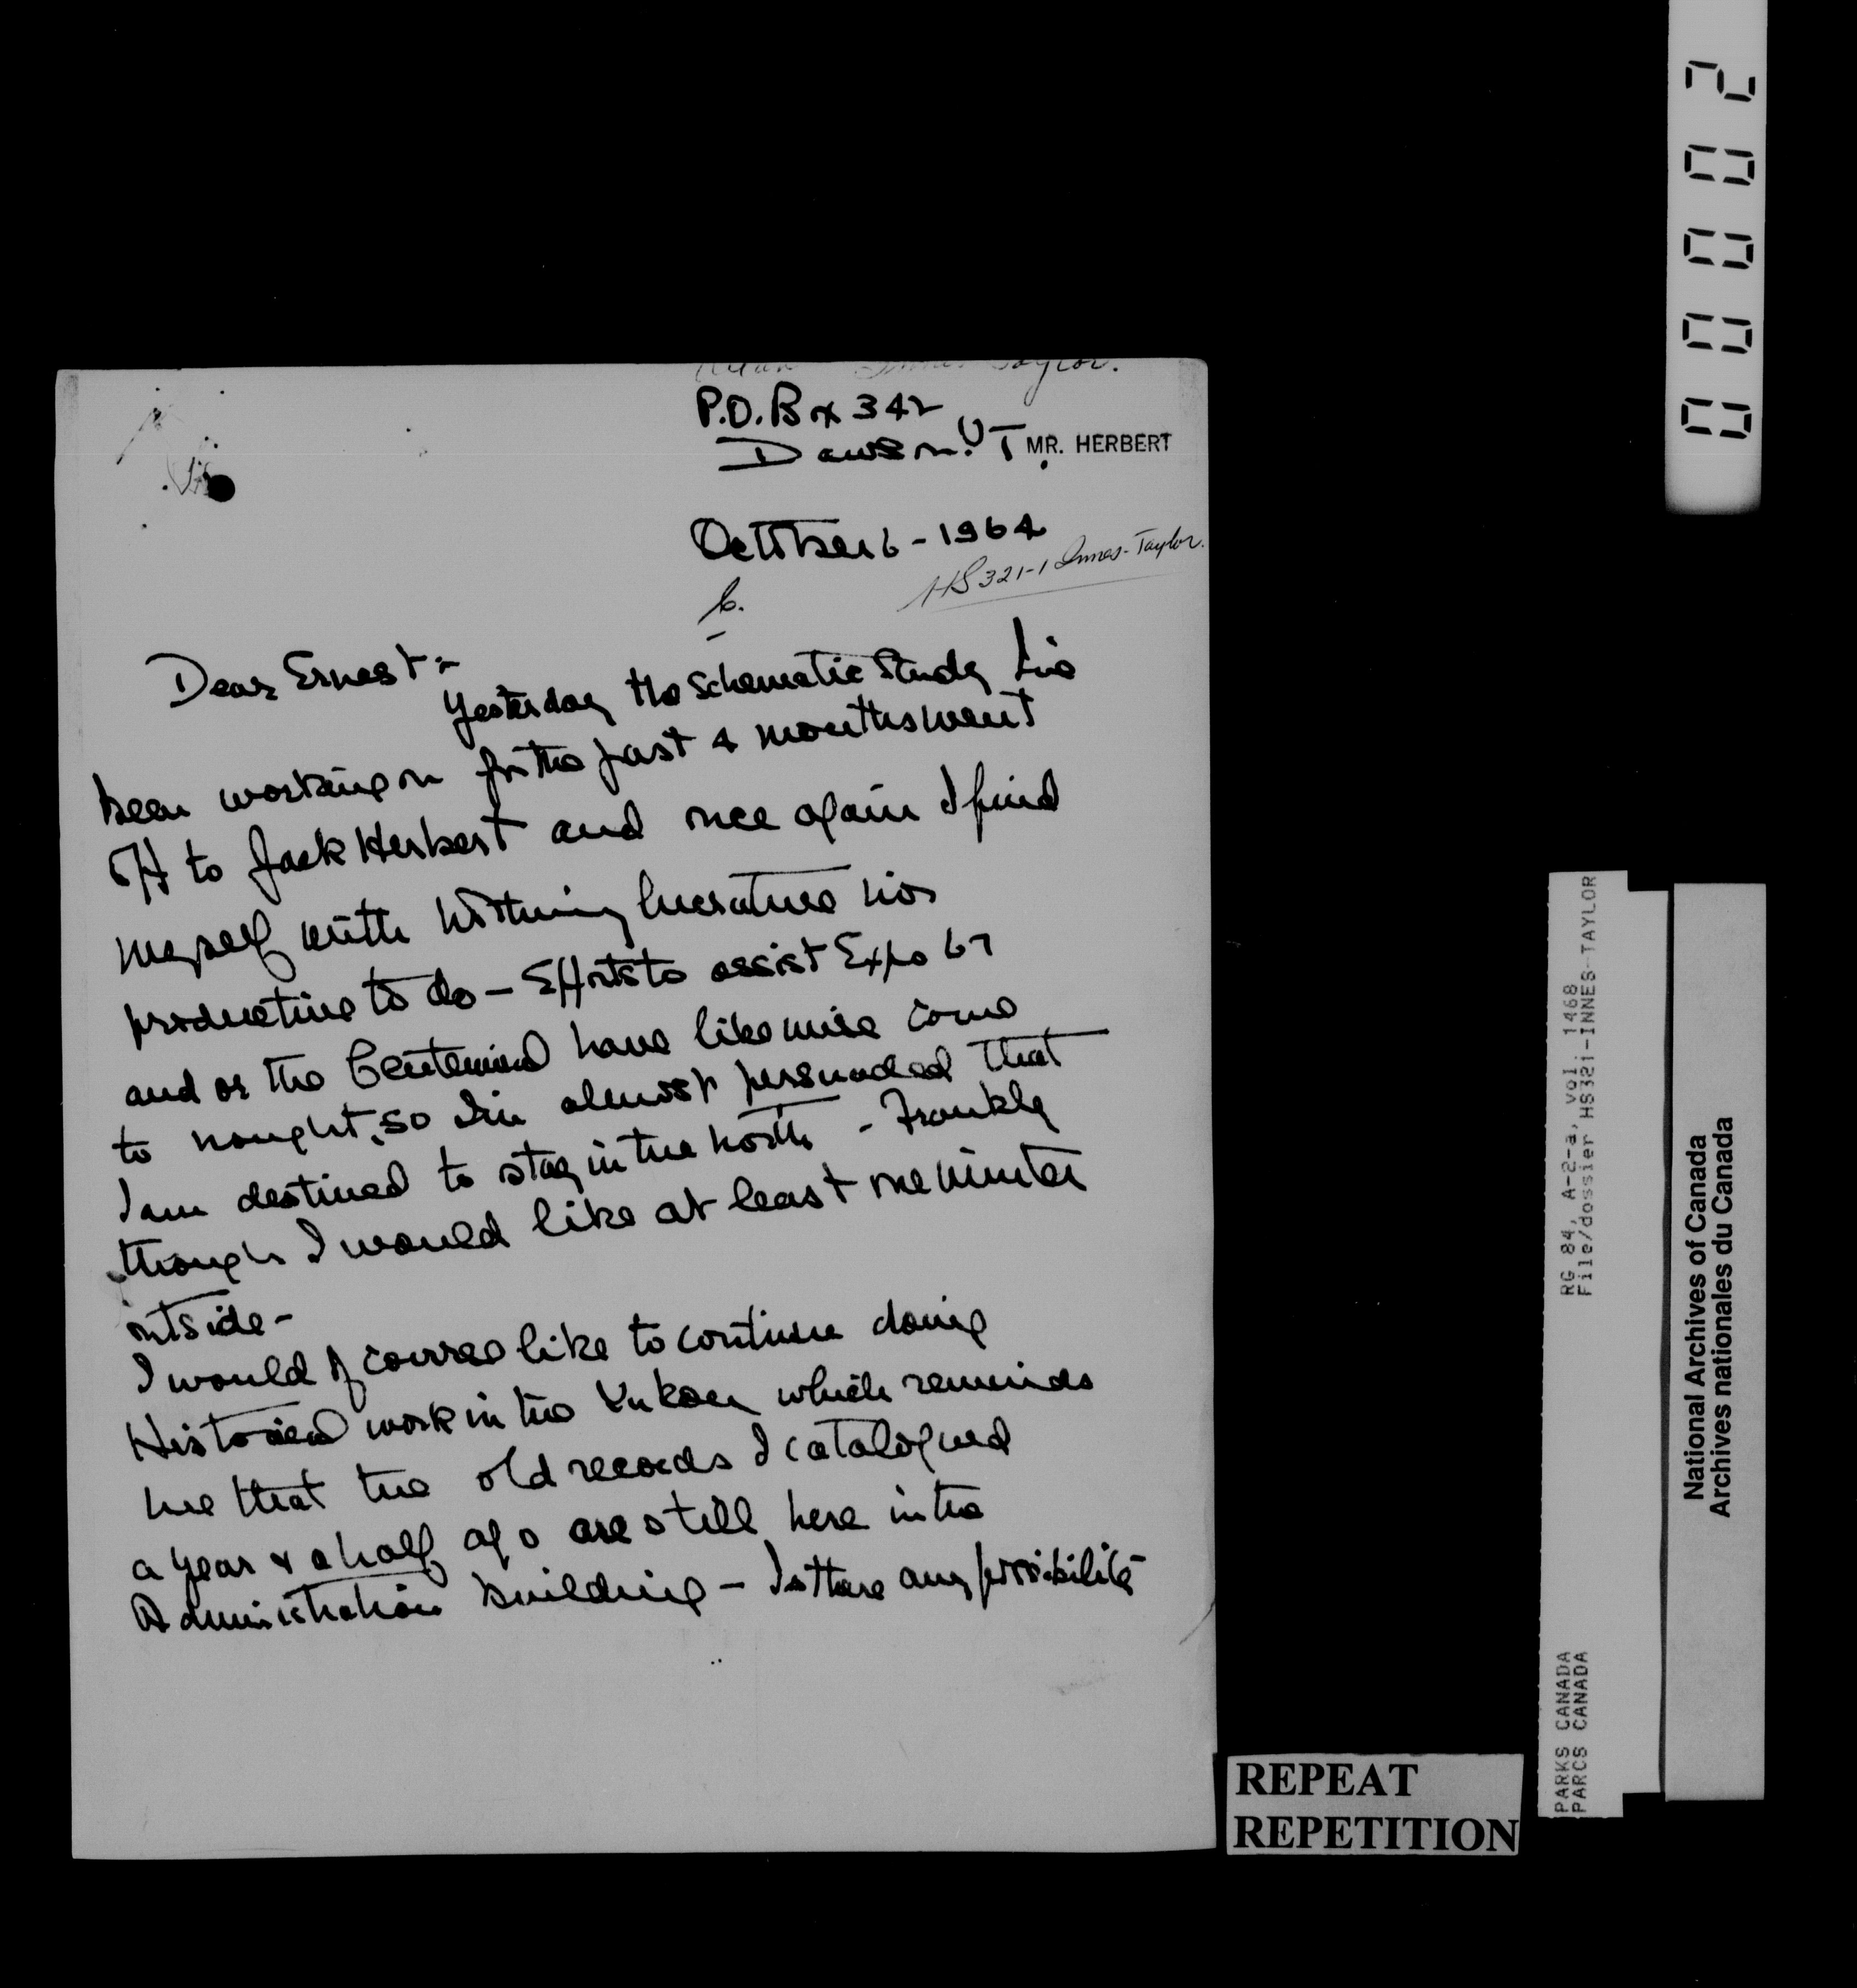 Allan Innes Taylor.
P.O. Box 342
Dawson. Y.T.
MR. HERBERT
October 6 - 1964
HS321-1 Innes-Taylor.
Dear Ernest:-
Yesterday the schematic study I've
been working on for the past 4 months went
off to Jack Herbert and once again I find
myself with nothing lucrative nor
productive to do - Efforts to assist Expo 67
and or the Centennial have likewise come
to nought, so I'm almost persuaded that
I am destined to stay in the north - Frankly
though I would like at least one winter
outside -
I would of course like to continue doing
Historical work in the Yukon which reminds
me that the old records I catalogued
a year & a half ago are still here in the
Administration building - Is there any possibility
REPEAT
REPETITION
00002
RG 84, A-2-a, vol. 1468
File/dossier HS321-INNES-TAYLOR
PARKS CANADA
PARCS CANADA
National Archives of Canada
Archives nationales du Canada